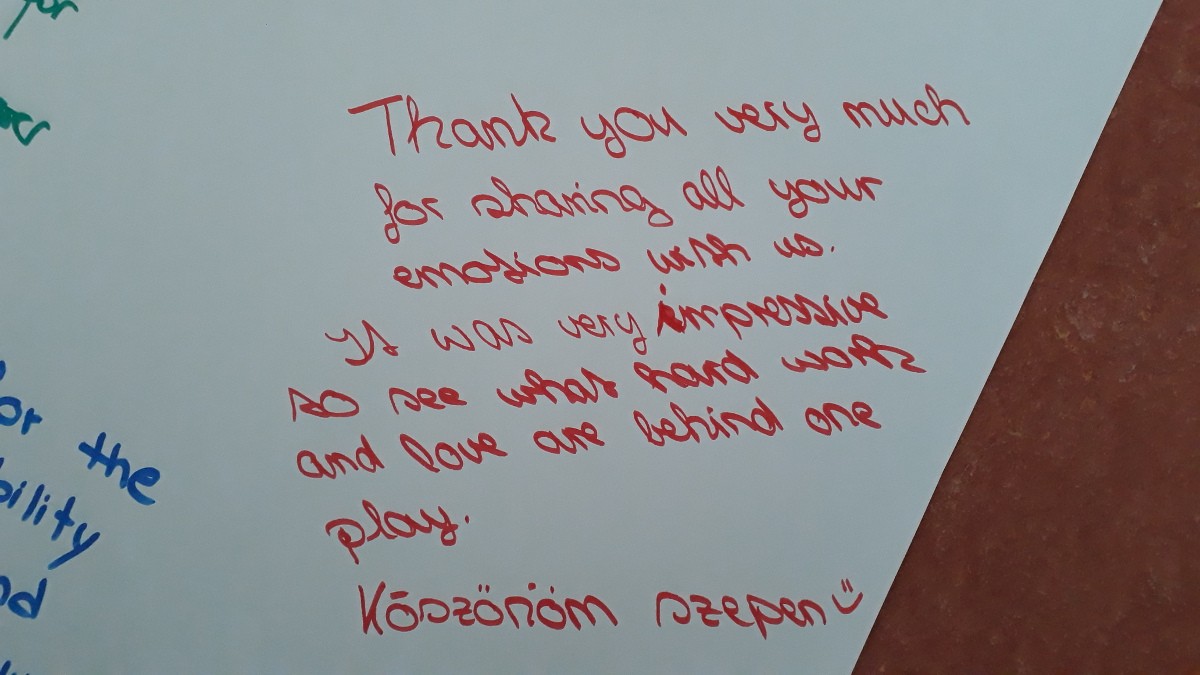 for
Thank you very much
for sharing all your
emotions with us.
It was very impressive
to see what hard work
and love are behind one
play.
Köszönöm szepen
the